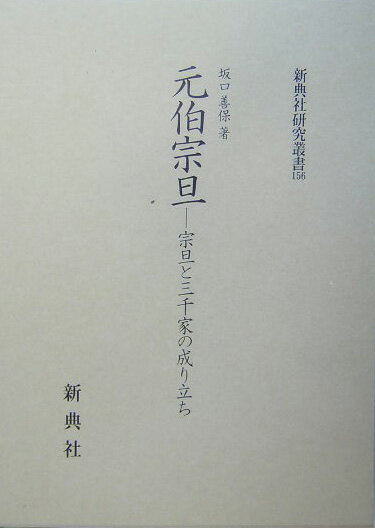 新典社研究叢書156
坂口善保 著
元伯宗旦―宗旦と三千家の成り立ち
新典社